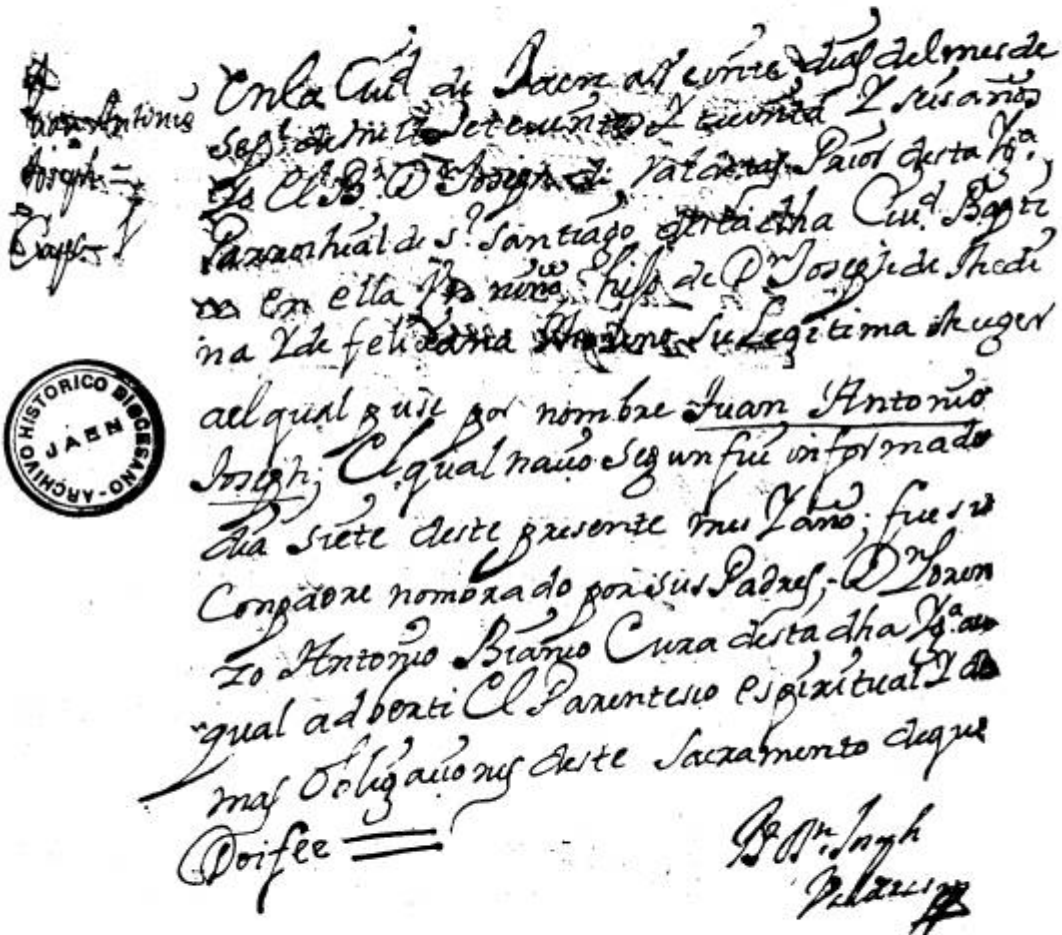 Juan Antonio
Joseph =
Capp.
En la Ciud de Jaen a Veinte dias del mes de
Sepe. de mill Setecientos Y treinta Y seis años
Yo El Br. Dn Joseph de Valdetas Prior desta Yga.
Parrochial de sr. Santiago desta dha Ciud. Bapti
en ella Vn niño, hijo de Dn Joseph de Medi
na Y de feliciana su Legitima Muger
ael qual puse por nombre Juan Antonio
Joseph; El qual nacio segun fui informado
dia siete deste presente mes Y año; fue su
Conpadre nombrado por sus Padres; Dn Loren
zo Antonio Bianco Cura desta dha Yga. al
qual adberti El Parentesco espiritual Y de
mas Obligaciones deste Sacramento deque
Doi fee =
Br Dn. Joseph
ARCHIVO HISTORICO DIOCESANO
JAEN